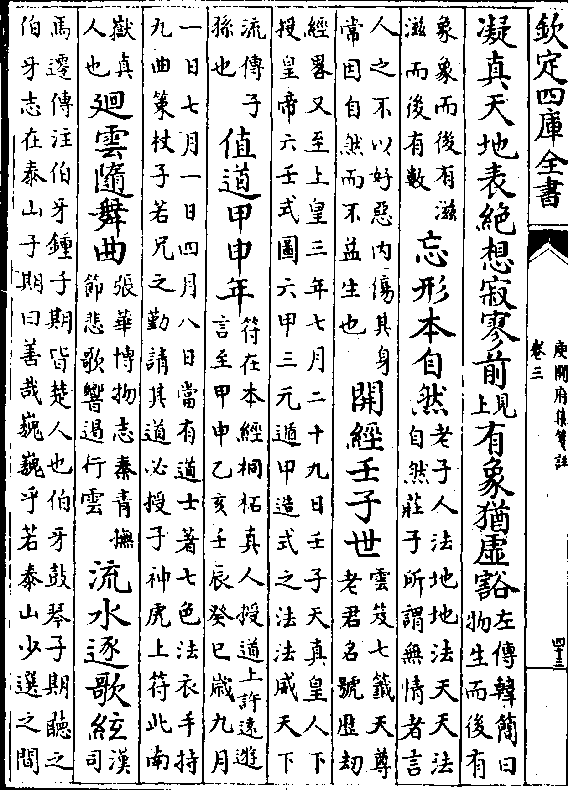 欽定四庫全書
庾開府集箋註
卷三
四十三
凝真天地表絶想寂寥前
見上
有象猶虛豁
左傳韓簡曰
物生而後有
象象而後有滋
滋而後有數
忘形本自然
老子人法地地法天天法
自然莊子所謂無情者言
人之不以好惡内傷其身
常因自然而不益生也
開經壬子世
雲笈七籤天尊
老君名號歷劫
經畧又至上皇三年七月二十九日壬子天真皇人下
授皇帝六壬式圖六甲三元遁甲造式之法法威天下
流傳子
孫也
值道甲申年
符在本經桐柘真人授道上許遠遊
言至甲申乙亥壬辰癸巳歲九月
一日七月一日四月八日當有道士著七色法衣手持
九曲策杖子若兄之勤請其道必授子神虎上符此南
嶽真
人也
廻雲隨舞曲
張華博物志秦青撫
節悲歌響遏行雲
流水逐歌絃
漢
司
馬遷傳注伯牙鍾子期皆楚人也伯牙鼓琴子期聽之
伯牙志在泰山子期曰善哉巍巍乎若泰山少選之間